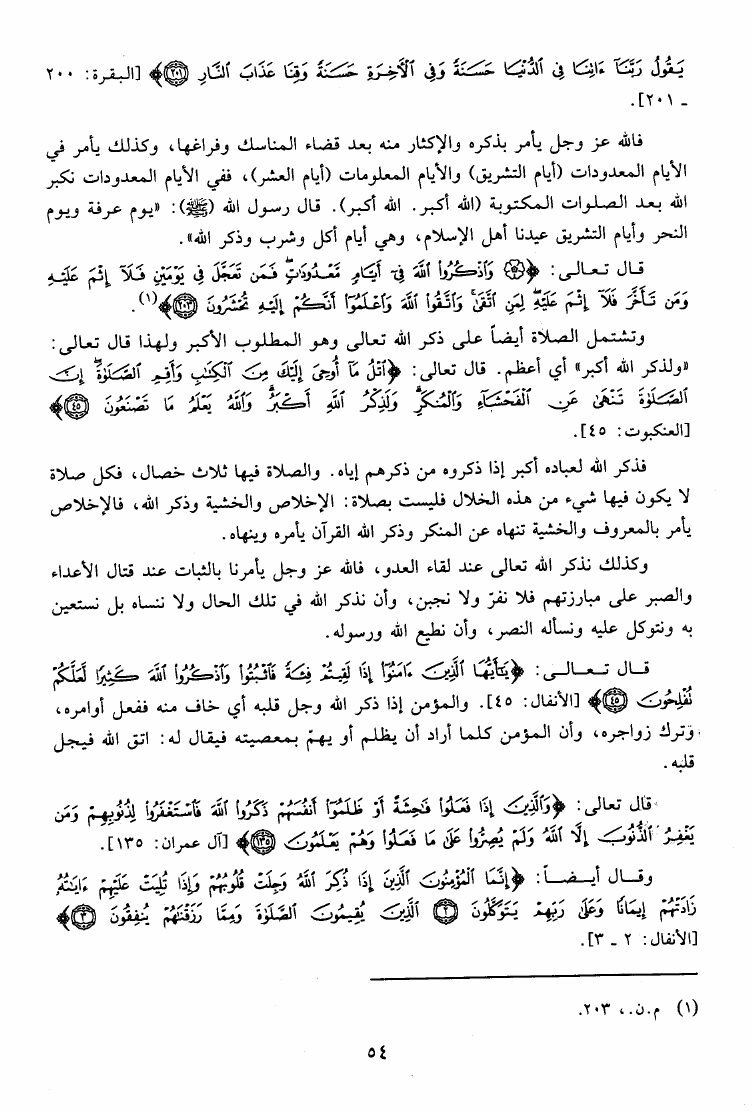 يَقُولُ رَبَّنَآ ءَاتِنَا فِى ٱلدُّنْيَا حَسَنَةً وَفِى ٱلْأَخِرَةِ حَسَنَةً وَقِنَا عَذَابَ ٱلنَّارِ ﴿٢٠١﴾ [البقرة: ٢٠٠
ـ ٢٠١].
فالله عز وجل يأمر بذكره والإكثار منه بعد قضاء المناسك وفراغها، وكذلك يأمر في
الأيام المعدودات (أيام التشريق) والأيام المعلومات (أيام العشر)، ففي الأيام المعدودات نكبر
الله بعد الصلوات المكتوبة (الله أكبر. الله أكبر). قال رسول الله (ﷺ): «يوم عرفة ويوم
النحر وأيام التشريق عيدنا أهل الإسلام، وهي أيام أكل وشرب وذكر الله».
قال تعالى: ﴿۞ وَٱذْكُرُوا۟ ٱللَّهَ فِىٓ أَيَّامٍ مَّعْدُودَٰتٍ ۚ فَمَن تَعَجَّلَ فِى يَوْمَيْنِ فَلَآ إِثْمَ عَلَيْهِ
وَمَن تَأَخَّرَ فَلَآ إِثْمَ عَلَيْهِ ۚ لِمَنِ ٱتَّقَىٰ ۗ وَٱتَّقُوا۟ ٱللَّهَ وَٱعْلَمُوٓا۟ أَنَّكُمْ إِلَيْهِ تُحْشَرُونَ ﴿٢٠٣﴾(١).
وتشتمل الصلاة أيضاً على ذكر الله تعالى وهو المطلوب الأكبر ولهذا قال تعالى:
«ولذكر الله أكبر» أي أعظم. قال تعالى: ﴿ٱتْلُ مَآ أُوحِىَ إِلَيْكَ مِنَ ٱلْكِتَٰبِ وَأَقِمِ ٱلصَّلَوٰةَ ۖ إِنَّ
ٱلصَّلَوٰةَ تَنْهَىٰ عَنِ ٱلْفَحْشَآءِ وَٱلْمُنكَرِ ۗ وَلَذِكْرُ ٱللَّهِ أَكْبَرُ ۗ وَٱللَّهُ يَعْلَمُ مَا تَصْنَعُونَ ﴿٤٥﴾
[العنكبوت: ٤٥].
فذكر الله لعباده أكبر إذا ذكروه من ذكرهم إياه. والصلاة فيها ثلاث خصال، فكل صلاة
لا يكون فيها شيء من هذه الخلال فليست بصلاة: الإخلاص والخشية وذكر الله، فالإخلاص
يأمر بالمعروف والخشية تنهاه عن المنكر وذكر الله القرآن يأمره وينهاه.
وكذلك نذكر الله تعالى عند لقاء العدو، فالله عز وجل يأمرنا بالثبات عند قتال الأعداء
والصبر على مبارزتهم فلا نفرّ ولا نجبن، وأن نذكر الله في تلك الحال ولا ننساه بل نستعين
به ونتوكل عليه ونسأله النصر، وأن نطيع الله ورسوله.
قال تعالى: ﴿يَٰٓأَيُّهَا ٱلَّذِينَ ءَامَنُوٓا۟ إِذَا لَقِيتُمْ فِئَةً فَٱثْبُتُوا۟ وَٱذْكُرُوا۟ ٱللَّهَ كَثِيرًا لَّعَلَّكُمْ
تُفْلِحُونَ ﴿٤٥﴾ [الأنفال: ٤٥]. والمؤمن إذا ذكر الله وجل قلبه أي خاف منه ففعل أوامره،
وترك زواجره، وأن المؤمن كلما أراد أن يظلم أو يهمّ بمعصيته فيقال له: اتق الله فيجل
قلبه.
قال تعالى: ﴿وَٱلَّذِينَ إِذَا فَعَلُوا۟ فَٰحِشَةً أَوْ ظَلَمُوٓا۟ أَنفُسَهُمْ ذَكَرُوا۟ ٱللَّهَ فَٱسْتَغْفَرُوا۟ لِذُنُوبِهِمْ وَمَن
يَغْفِرُ ٱلذُّنُوبَ إِلَّا ٱللَّهُ وَلَمْ يُصِرُّوا۟ عَلَىٰ مَا فَعَلُوا۟ وَهُمْ يَعْلَمُونَ ﴿١٣٥﴾ [آل عمران: ١٣٥].
وقال أيضاً: ﴿إِنَّمَا ٱلْمُؤْمِنُونَ ٱلَّذِينَ إِذَا ذُكِرَ ٱللَّهُ وَجِلَتْ قُلُوبُهُمْ وَإِذَا تُلِيَتْ عَلَيْهِمْ ءَايَٰتُهُۥ
زَادَتْهُمْ إِيمَٰنًا وَعَلَىٰ رَبِّهِمْ يَتَوَكَّلُونَ ﴿٢﴾ ٱلَّذِينَ يُقِيمُونَ ٱلصَّلَوٰةَ وَمِمَّا رَزَقْنَٰهُمْ يُنفِقُونَ ﴿٣﴾
[الأنفال: ٢ ـ ٣].
(١) م.ن.، ٢٠٣.
٥٤